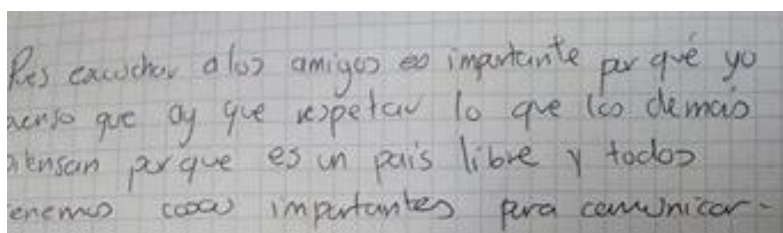 Pues escuchar a los amigos es importante por qué yo
pienso que ay que respetar lo que los demás
piensan porque es un país libre y todos
tenemos cosas importantes para comunicar-